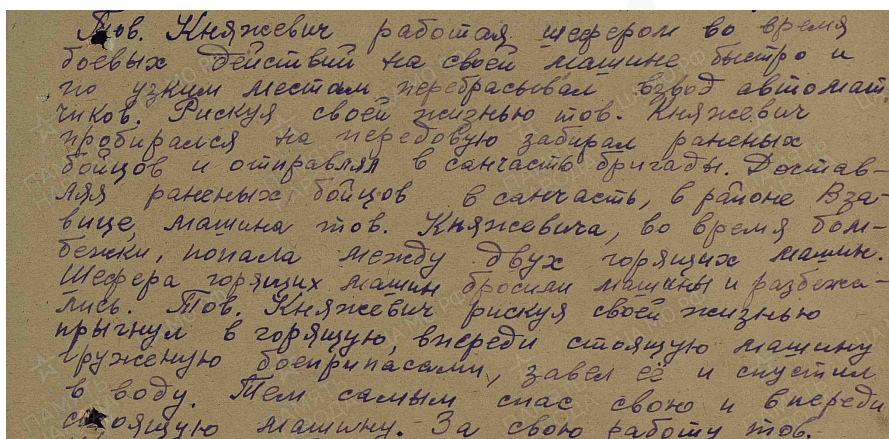 Тов. Княжевич работая шефером во время
боевых действий на своей машине быстро и
по узким местам перебрасывал взвод автомат
чиков. Рискуя своей жизнью тов. Княжевич
пробирался на передовую забирал раненых
бойцов и отправлял в санчасть бригады. Достав-
ляя раненых бойцов в санчасть, в районе Вза-
вице, машина тов. Княжевича, во время бом-
бежки, попала между двух горящих машин.
Шефера горящих машин бросили машины и разбежа-
лись. Тов. Княжевич рискуя своей жизнью
прыгнул в горящую, впереди стоящую машину
груженую боеприпасами, завел её и спустил
в воду. Тем самым спас свою и впереди
стоящую машину. За свою работу тов.